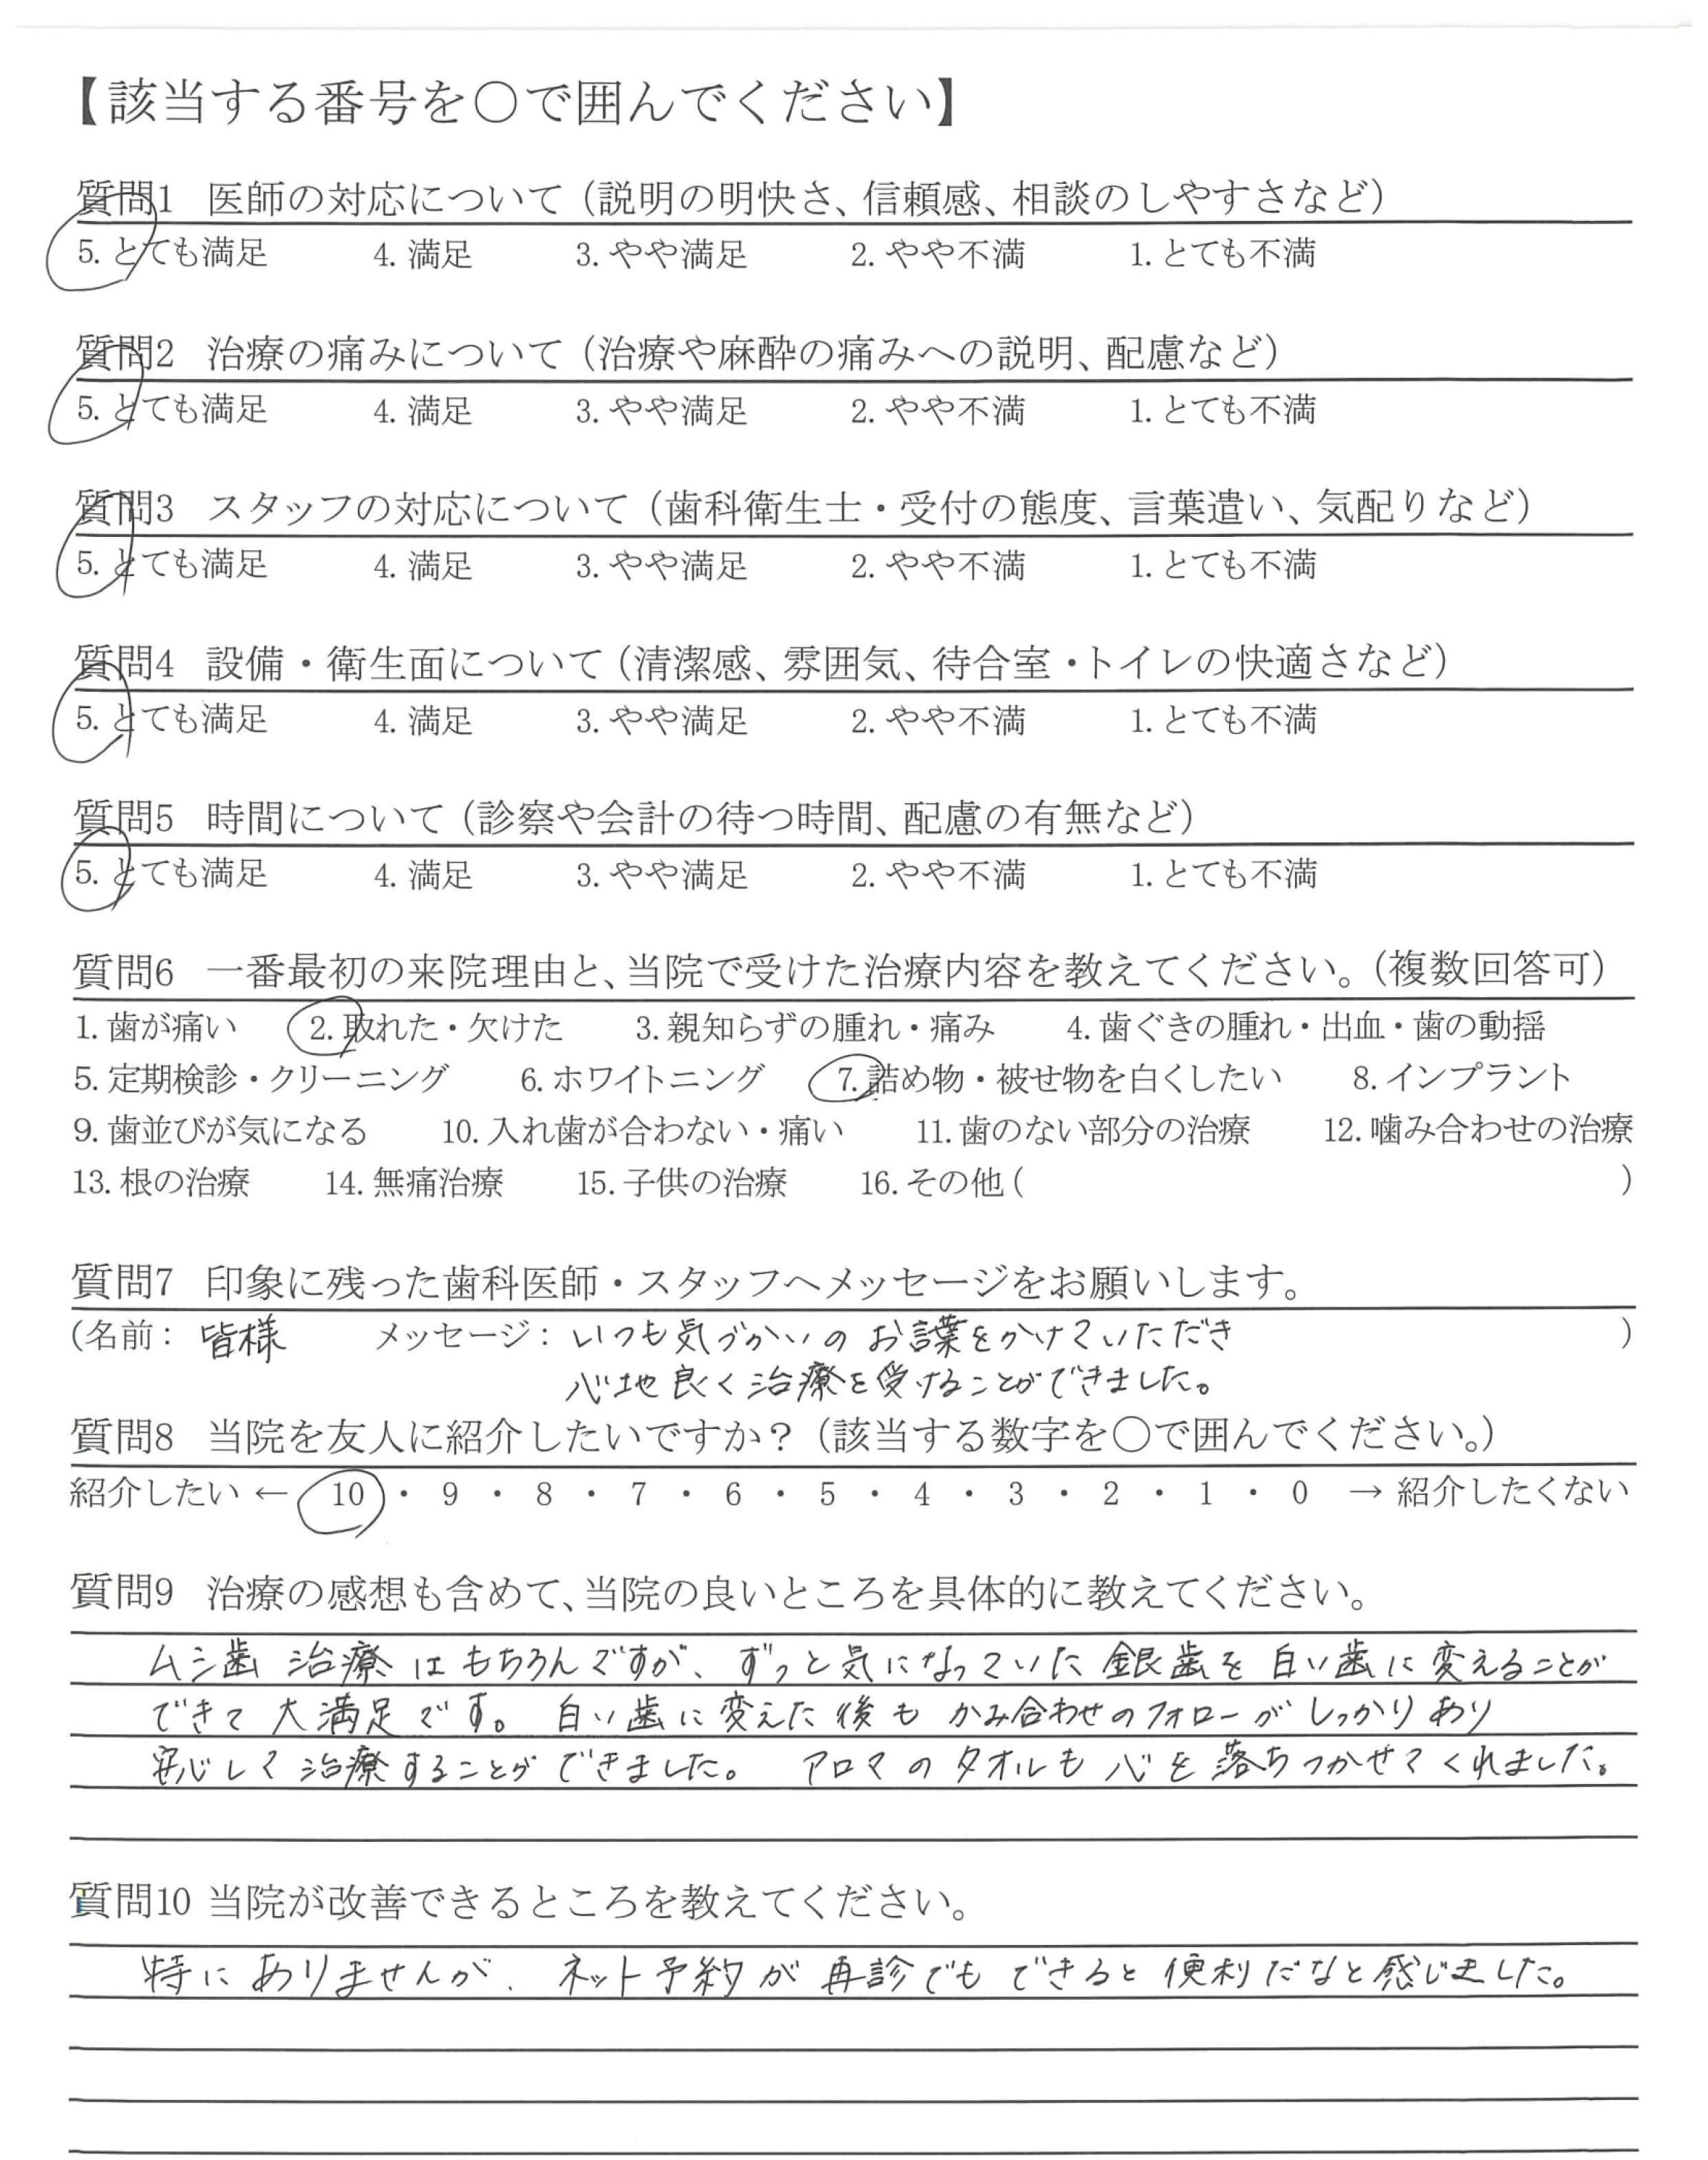 【該当する番号を〇で囲んでください】
質問1 医師の対応について（説明の明快さ、信頼感、相談のしやすさなど）
5. とても満足 4. 満足 3. やや満足 2. やや不満 1. とても不満
質問2 治療の痛みについて（治療や麻酔の痛みへの説明、配慮など）
5. とても満足 4. 満足 3. やや満足 2. やや不満 1. とても不満
質問3 スタッフの対応について（歯科衛生士・受付の態度、言葉遣い、気配りなど）
5. とても満足 4. 満足 3. やや満足 2. やや不満 1. とても不満
質問4 設備・衛生面について（清潔感、雰囲気、待合室・トイレの快適さなど）
5. とても満足 4. 満足 3. やや満足 2. やや不満 1. とても不満
質問5 時間について（診察や会計の待つ時間、配慮の有無など）
5. とても満足 4. 満足 3. やや満足 2. やや不満 1. とても不満
質問6 一番最初の来院理由と、当院で受けた治療内容を教えてください。（複数回答可）
1. 歯が痛い 2. 取れた・欠けた 3. 親知らずの腫れ・痛み 4. 歯ぐきの腫れ・出血・歯の動揺
5. 定期検診・クリーニング 6. ホワイトニング 7. 詰め物・被せ物を白くしたい 8. インプラント
9. 歯並びが気になる 10. 入れ歯が合わない・痛い 11. 歯のない部分の治療 12. 噛み合わせの治療
13. 根の治療 14. 無痛治療 15. 子供の治療 16. その他（ ）
質問7 印象に残った歯科医師・スタッフへメッセージをお願いします。
（名前： 皆様 メッセージ： いつも気づかいのお言葉をかけていただき ）
心地良く治療を受けることができました。
質問8 当院を友人に紹介したいですか？（該当する数字を〇で囲んでください。）
紹介したい ← 10 ・ 9 ・ 8 ・ 7 ・ 6 ・ 5 ・ 4 ・ 3 ・ 2 ・ 1 ・ 0 → 紹介したくない
質問9 治療の感想も含めて、当院の良いところを具体的に教えてください。
ムシ歯治療はもちろんですが、ずっと気になっていた銀歯を白い歯に変えることが
できて大満足です。白い歯に変えた後もかみ合わせのフォローがしっかりあり
安心して治療することができました。 アロマのタオルも心を落ちつかせてくれました。
質問10 当院が改善できるところを教えてください。
特にありませんが、ネット予約が再診でもできると便利だなと感じました。